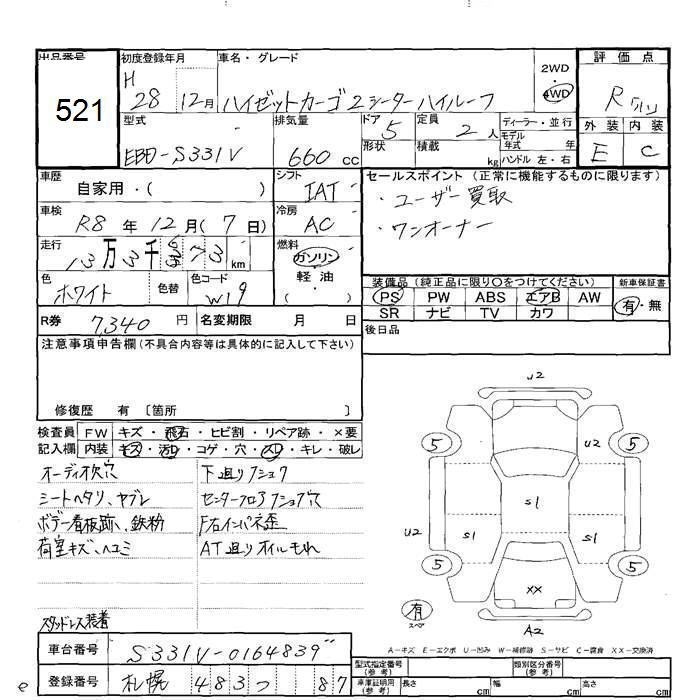 出品番号
521
初度登録年月
H 28 12月
車名・グレード
ハイゼットカーゴ2シーターハイルーフ
2WD
・
4WD
評価点
R
外装 内装
E C
型式
EBD-S331V
排気量
660 cc
ドア 5
形状
定員 2 人
積載 kg
ディーラー・並行
モデル年式 年
ハンドル 左・右
車歴
自家用・( )
シフト
IAT
車検
R8 年 12 月 ( 7 日)
冷房
AC
走行
13万3千 73 km
燃料
ガソリン
・
軽・油
( )
色
ホワイト
色替
色コード
W19
R券 7,340 円
名変期限 月 日
セールスポイント (正常に機能するものに限ります)
・ユーザー買取
・ワンオーナー
装備品 (純正品に限り○をつけてください)
PS PW ABS エアB AW
SR ナビ TV カワ
新車保証書
有・無
後日品
注意事項申告欄(不具合内容等は具体的に記入して下さい)
修復歴 有 〔箇所 〕
検査員記入欄
FW キズ・飛石・ヒビ割・リペア跡・×要
内装 キズ・汚れ・コゲ・穴・スレ・キレ・破レ
オーディオ欠穴
シートヘタリ、ヤブレ
ボデー看板跡、鉄粉
荷室キズ、ヘコミ
スタッドレス装着
下廻りフショク
センターフロアフショク穴
F右インパネ歪
AT廻りオイルもれ
U2
5
U2
5
S1
U2
S1
S1
5
5
XX
有
スペア
A2
A-キズ E-エクボ U-凹み W-補修跡 S-サビ C-腐食 XX-交換済
車台番号
S331V-0164839"
登録番号
札幌 483つ 87
型式指定番号(参考)
類別区分番号(参考)
車庫証明用(参考)
長さ cm
幅 cm
高さ cm